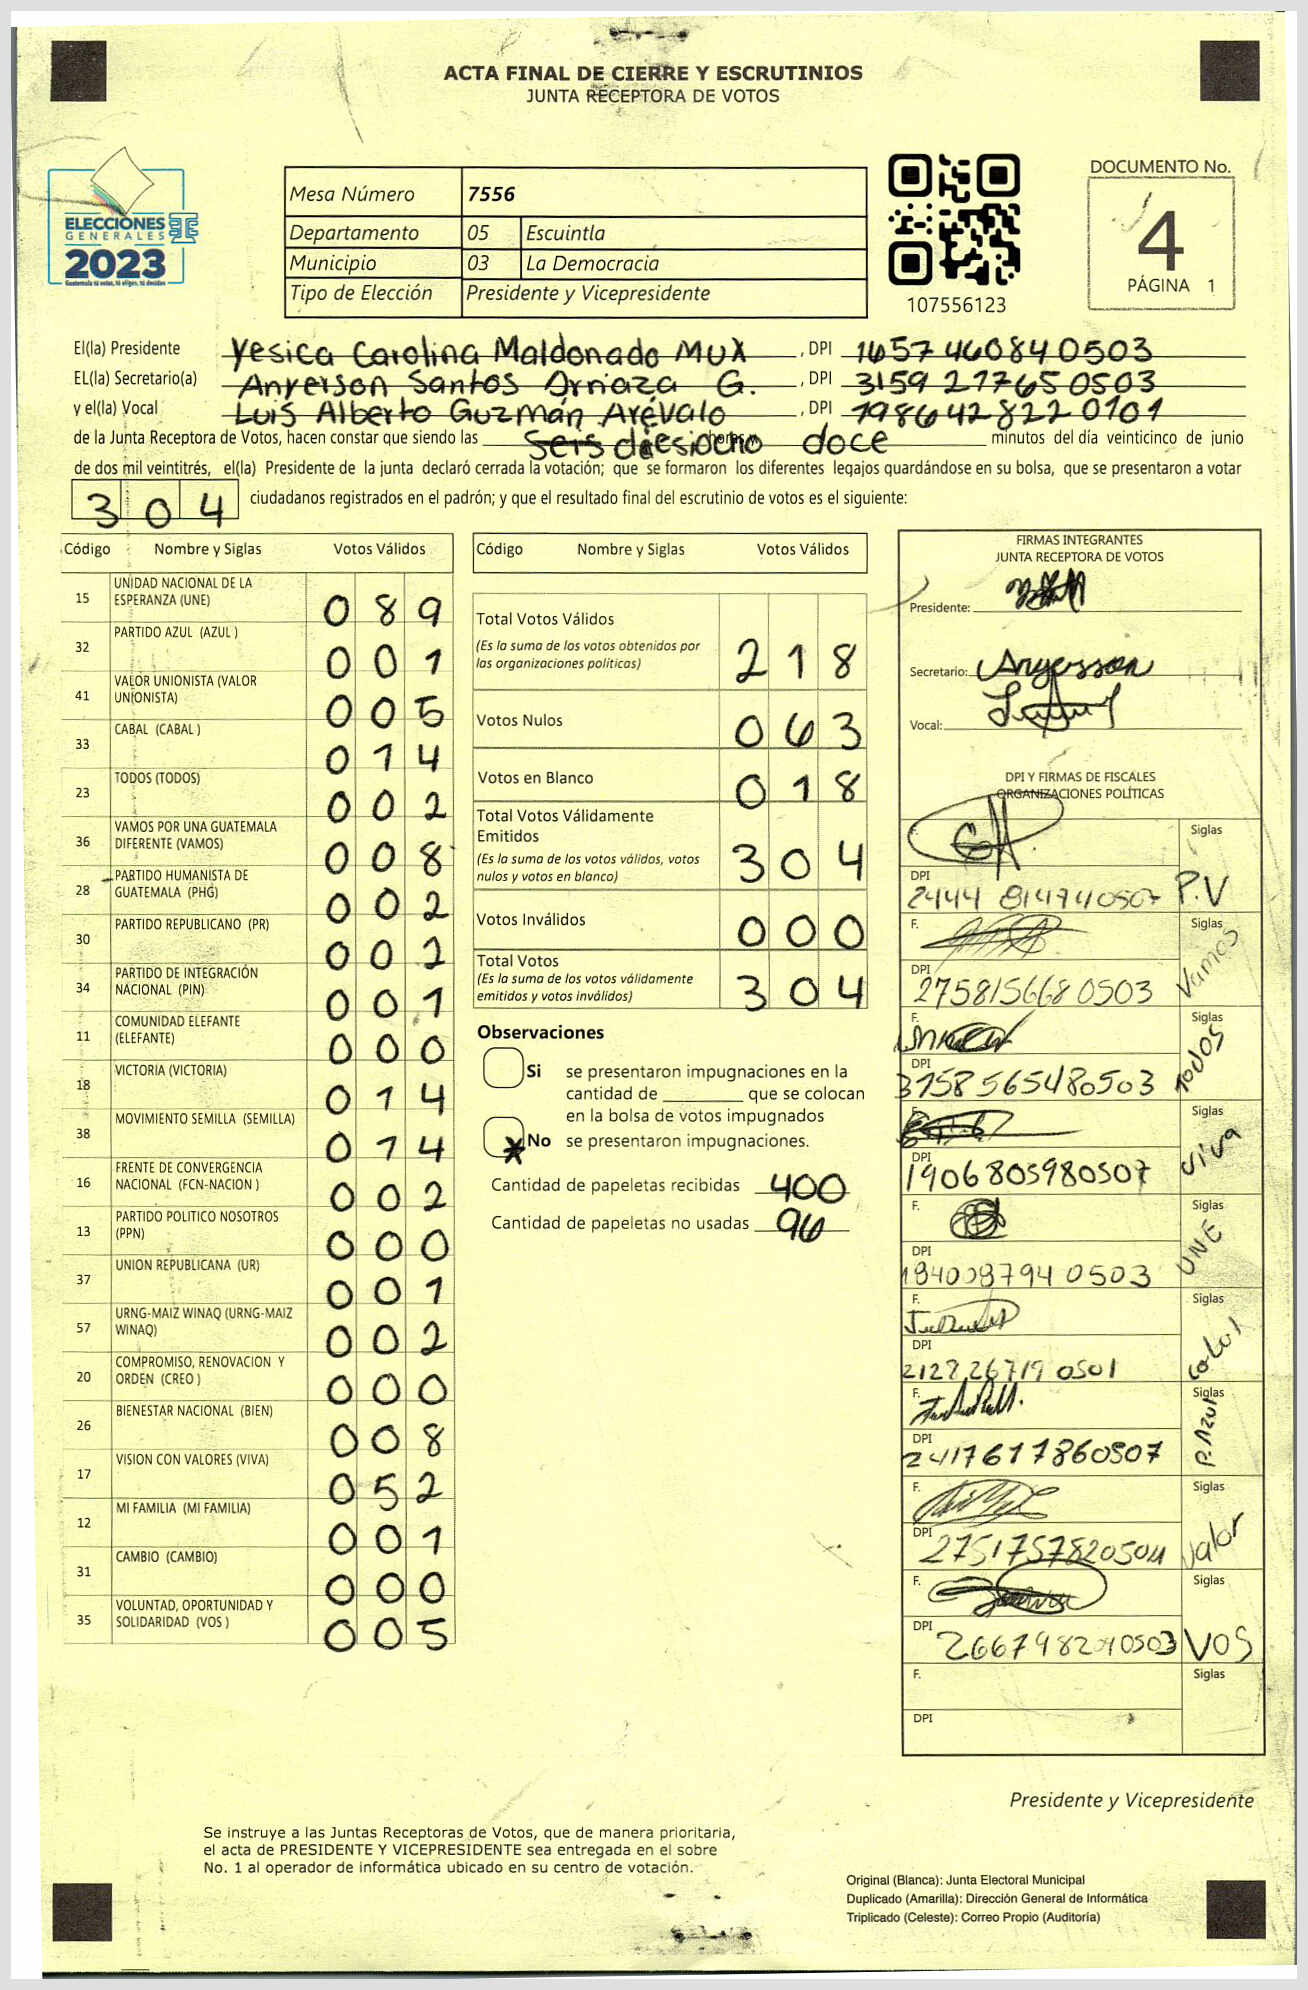 ACTA FINAL DE CIERRE Y ESCRUTINIOS
JUNTA RECEPTORA DE VOTOS
ELECCIONES
GENERALES
2023
Guatemala tú votas, tú eliges, tú decides
Mesa Número 7556
Departamento 05 Escuintla
Municipio 03 La Democracia
Tipo de Elección Presidente y Vicepresidente
107556123
DOCUMENTO No.
4
PÁGINA 1
El(la) Presidente Yesica Carolina Maldonado MUX , DPI 1657 46084 0503
EL(la) Secretario(a) Anyerson Santos Orriaza G. , DPI 3159 27765 0503
y el(la) Vocal Luis Alberto Guzmán Arévalo , DPI 1986 42822 0101
de la Junta Receptora de Votos, hacen constar que siendo las seis diesiocho horas y doce minutos del día veinticinco de junio
de dos mil veintitrés, el(la) Presidente de la junta declaró cerrada la votación; que se formaron los diferentes legajos guardándose en su bolsa, que se presentaron a votar
304 ciudadanos registrados en el padrón; y que el resultado final del escrutinio de votos es el siguiente:
Código Nombre y Siglas Votos Válidos
15 UNIDAD NACIONAL DE LA ESPERANZA (UNE) 089
32 PARTIDO AZUL (AZUL ) 001
41 VALOR UNIONISTA (VALOR UNIONISTA) 005
33 CABAL (CABAL ) 014
23 TODOS (TODOS) 002
36 VAMOS POR UNA GUATEMALA DIFERENTE (VAMOS) 008
28 PARTIDO HUMANISTA DE GUATEMALA (PHG) 002
30 PARTIDO REPUBLICANO (PR) 002
34 PARTIDO DE INTEGRACIÓN NACIONAL (PIN) 001
11 COMUNIDAD ELEFANTE (ELEFANTE) 000
18 VICTORIA (VICTORIA) 014
38 MOVIMIENTO SEMILLA (SEMILLA) 014
16 FRENTE DE CONVERGENCIA NACIONAL (FCN-NACION ) 002
13 PARTIDO POLITICO NOSOTROS (PPN) 000
37 UNION REPUBLICANA (UR) 001
57 URNG-MAIZ WINAQ (URNG-MAIZ WINAQ) 002
20 COMPROMISO, RENOVACION Y ORDEN (CREO ) 000
26 BIENESTAR NACIONAL (BIEN) 008
17 VISION CON VALORES (VIVA) 052
12 MI FAMILIA (MI FAMILIA) 001
31 CAMBIO (CAMBIO) 000
35 VOLUNTAD, OPORTUNIDAD Y SOLIDARIDAD (VOS ) 005
Código Nombre y Siglas Votos Válidos
Total Votos Válidos
(Es la suma de los votos obtenidos por
las organizaciones políticas) 218
Votos Nulos 063
Votos en Blanco 018
Total Votos Válidamente
Emitidos
(Es la suma de los votos válidos, votos
nulos y votos en blanco) 304
Votos Inválidos 000
Total Votos
(Es la suma de los votos válidamente
emitidos y votos inválidos) 304
Observaciones
Si se presentaron impugnaciones en la
cantidad de ________ que se colocan
en la bolsa de votos impugnados
No se presentaron impugnaciones.
Cantidad de papeletas recibidas 400
Cantidad de papeletas no usadas 96
FIRMAS INTEGRANTES
JUNTA RECEPTORA DE VOTOS
Presidente:
Secretario: Anyersson
Vocal:
DPI Y FIRMAS DE FISCALES
ORGANIZACIONES POLÍTICAS
F. Siglas P.V
DPI 2444 81474 0507
F. Siglas Vamos
DPI 275815668 0503
F. Siglas TODOS
DPI 3758565480503
F. Siglas VIVA
DPI 1906805980507
F. Siglas UNE
DPI
F. Siglas Cabal
DPI 212826719 0501
F. Siglas P. Azul
DPI 2417617860507
F. Siglas Valor
DPI 2751757820504
F. Siglas VOS
DPI
F. Siglas
DPI
Presidente y Vicepresidente
Se instruye a las Juntas Receptoras de Votos, que de manera prioritaria,
el acta de PRESIDENTE Y VICEPRESIDENTE sea entregada en el sobre
No. 1 al operador de informática ubicado en su centro de votación.
Original (Blanca): Junta Electoral Municipal
Duplicado (Amarilla): Dirección General de Informática
Triplicado (Celeste): Correo Propio (Auditoría)